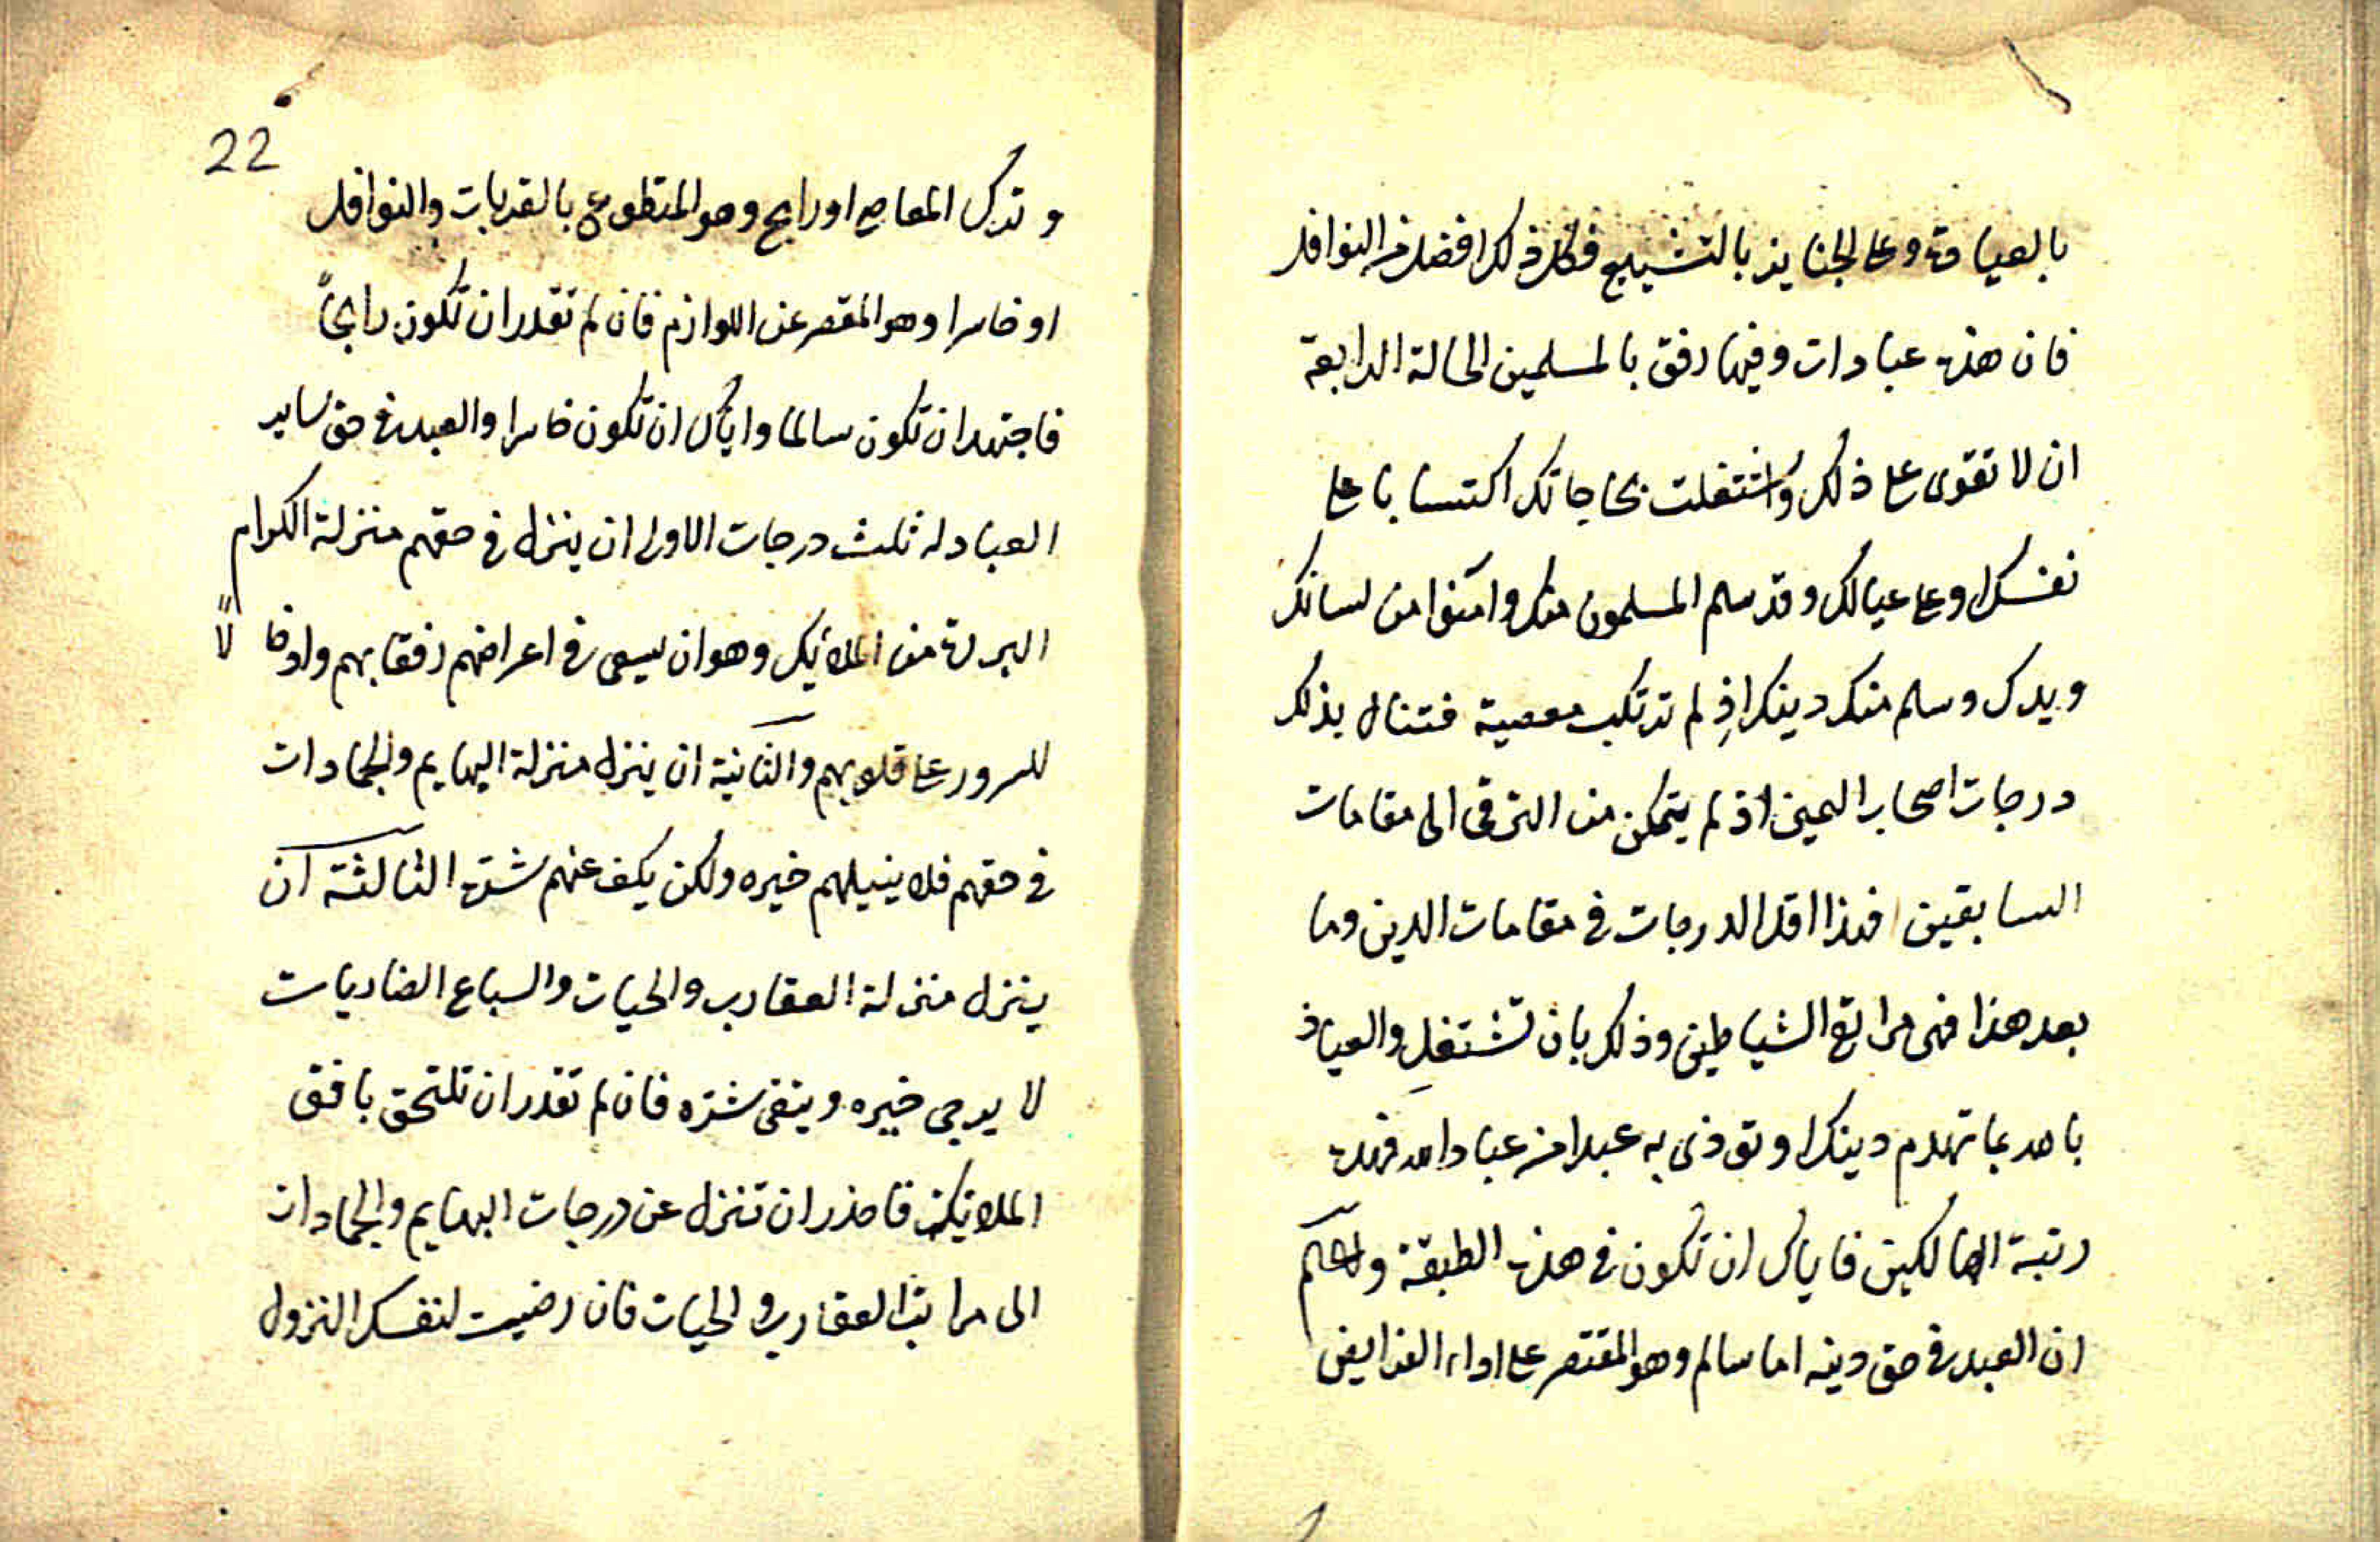 بالعيادة وعلى الجنايز بالتشييع فكل ذلك افضل من النوافل
فان هذه عبادات وفيها رفق بالمسلمين الحالة الرابعة
ان لا تقوى على ذلك واشتغلت بحاجاتك اكتسابا على
نفسك او على عيالك وقد سلم المسلمون منك وامنوا من لسانك
ويدك وسلم منك دينك اذ لم ترتكب معصية فتنال بذلك
درجات اصحاب اليمين اذ لم يتمكن من الترقى الى مقامات
السابقين فهذا اقل الدرجات في مقامات الدين وما
بعد هذا فهى مراتع الشياطين وذلك بان تشتغل والعياذ
بالله بما تهدم دينك او تؤذى به عبدا من عباد الله فهذه
رتبة الهالكين فاياك ان تكون في هذه الطبقة واعلم
ان العبد في حق دينه اما سالم وهو المقتصر على اداء الفرايض
22
وترك المعاصي او رابح وهو المتطوع بالقربات والنوافل
او خاسرا وهو المقصر عن اللوازم فان لم تقدر ان تكون رابحاً
فاجتهد ان تكون سالما واياك ان تكون خاسرا والعبد في حق ساير
العباد له ثلث درجات الاولى ان ينزل في حقهم منزلة الكرام
البررة من الملائكة وهو ان يسعى في اعراضهم رفقا بهم وادخالاً
للسرور على قلوبهم والثانية ان ينزل منزلة البهايم والجمادات
في حقهم فلا ينيلهم خيره ولكن يكف عنهم شره الثالثة ان
ينزل منزلة العقارب والحيات والسباع الضاريات
لا يرجى خيره ويتقى شره فان لم تقدر ان تلتحق بافق
الملائكة فاحذر ان تنزل عن درجات البهايم والجمادات
الى مراتب العقارب والحيات فان رضيت لنفسك النزول